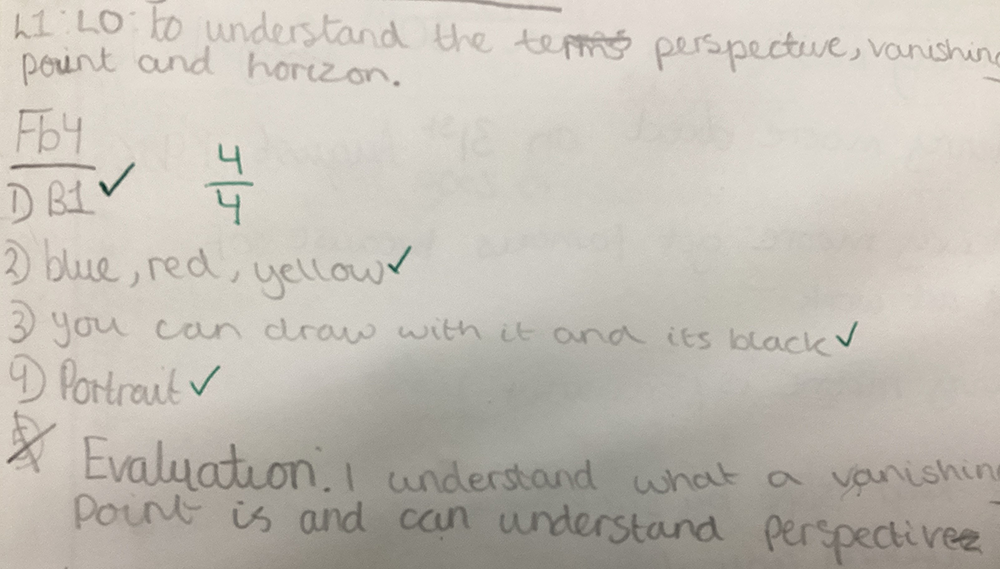 L1: LO: to understand the terms perspective, vanishing
point and horizon.
Fb4
1) B1 ✓ 4/4
2) blue, red, yellow ✓
3) you can draw with it and its black ✓
4) Portrait ✓
Evaluation. I understand what a vanishing
point is and can understand perspective